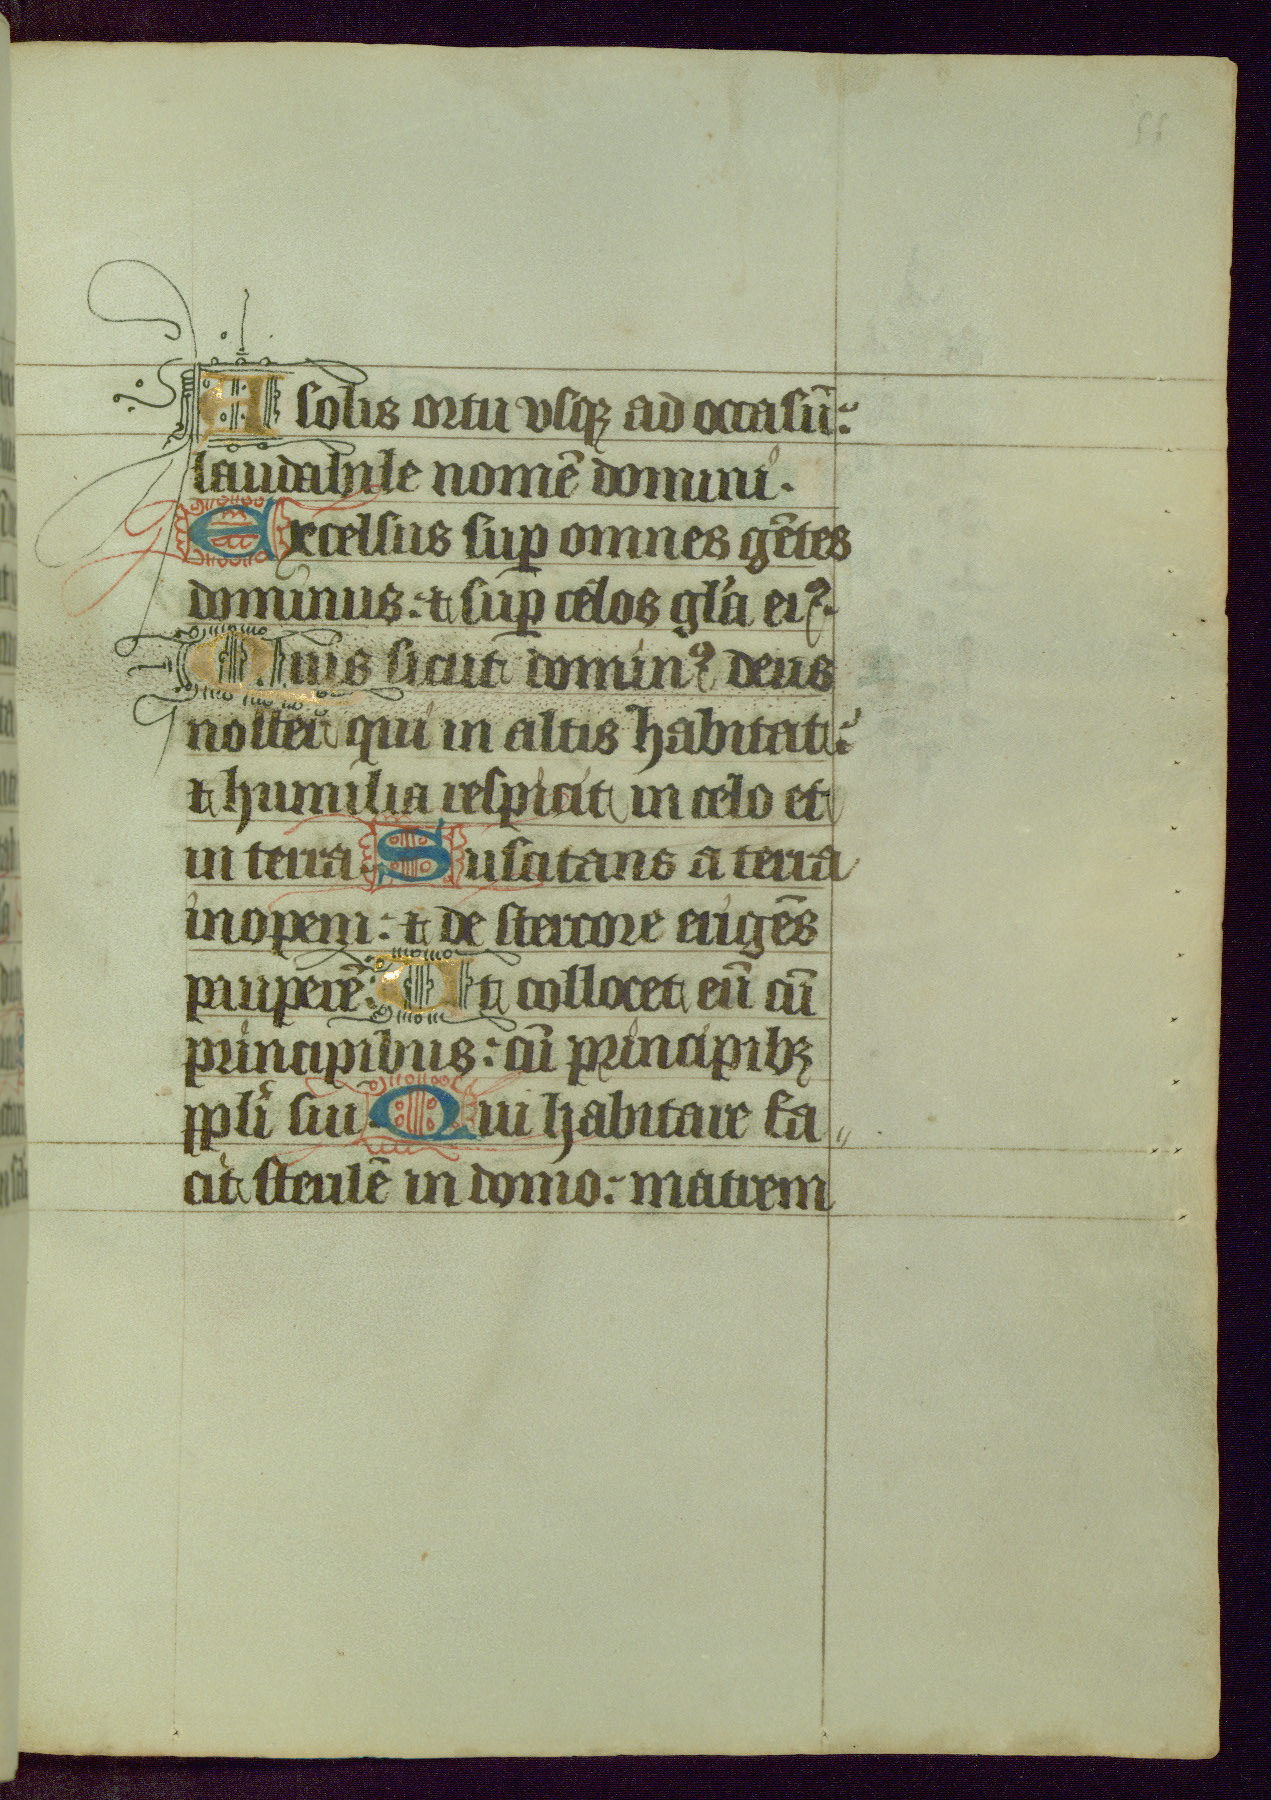 A solis ortu usqꝫ ad occasū:
laudabile nomē domini.
Excelsus sup omnes gētes
dominus: ⁊ sup celos gl'a eiꝰ.
Quis sicut dominꝰ deus
noster qui in altis habitat:
⁊ humilia respicit in celo et
in terra Suscitans a terra
inopem: ⁊ de stercore erigēs
pauperē: Ut collocet eū cū
principibus: cū principibꝫ
ppl'i sui Qui habitare fa〃
cit sterilē in domo: matrem